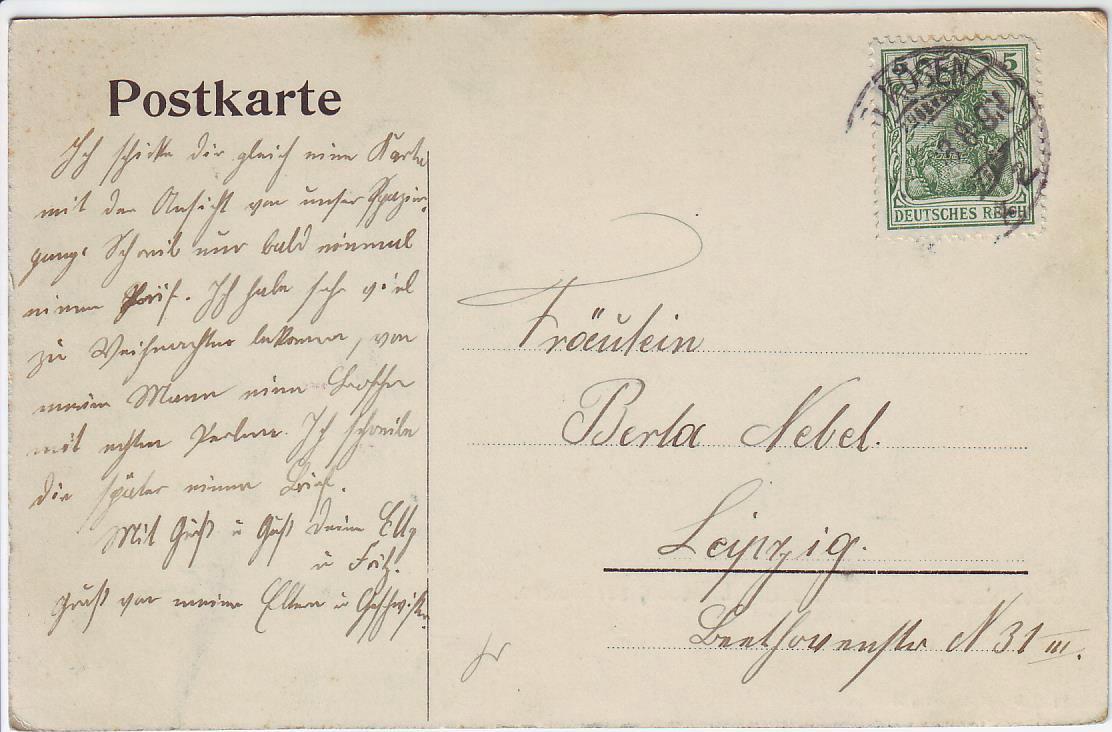 Postkarte
5 5
DEUTSCHES REICH
Ich schicke dir gleich eine Karte
mit der Ansicht von unser Spazier-
gang. Schreib nur bald einmal
einen Brief. Ich habe sehr viel
zu Weihnachten bekommen, von
meinen Mann eine Brosche
mit echten Perlen. Ich schreibe
dir später einen Brief.
Mit Gruß u Gruß deine Elly
u Fritz.
Gruß von meine Eltern u Geschwister
Fräulein
Berta Nebel.
Leipzig.
Beethovenstr N 31 III.
fr